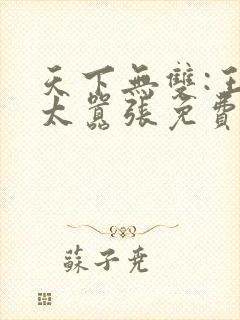 天下無雙:王
太囂張免費
蘇子堯